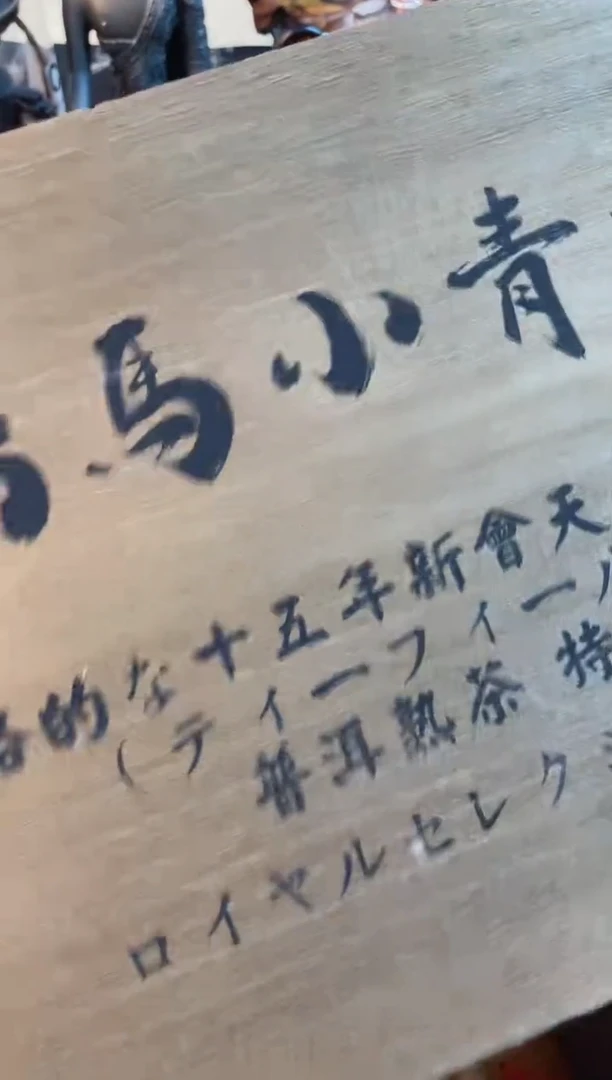 馬小青
的な十五年新會天
(ティーフィール
普洱熟茶 特
ロイヤルセレク